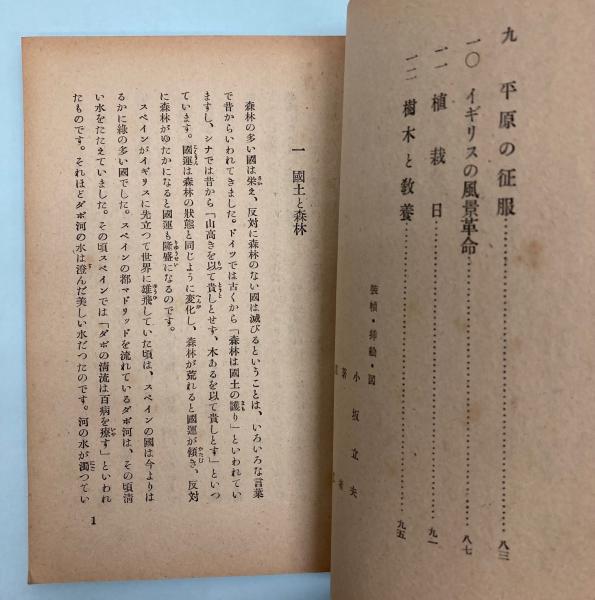 九　平原の征服……………………八三
一〇　イギリスの風景革命……………………八七
一一　植栽日……………………九一
一二　樹木と敎養……………………九五
装幀・挿繪・図
小坂立夫
一　國土と森林
森林の多い國は栄え、反対に森林のない國は滅びるということは、いろいろな言葉
で昔からいわれてきました。ドイツでは古くから「森林は國土の護り」といわれてい
ますし、シナでは昔から「山高きを以て貴しとせず、木あるを以て貴しとす」といつ
ています。國運は森林の狀態と同じように変化し、森林が荒れると國運が傾き、反対
に森林がゆたかになると國運も隆盛になるのです。
スペインがイギリスに先立つて世界に雄飛していた頃は、スペインの國は今よりは
るかに綠の多い國でした。スペインの都マドリッドを流れているダボ河は、その頃清
い水をたたえていました。その頃スペインでは「ダボの清流は百病を療す」といわれ
たものです。それほどダボ河の水は澄んだ美しい水だつたのです。河の水が濁つてい
1